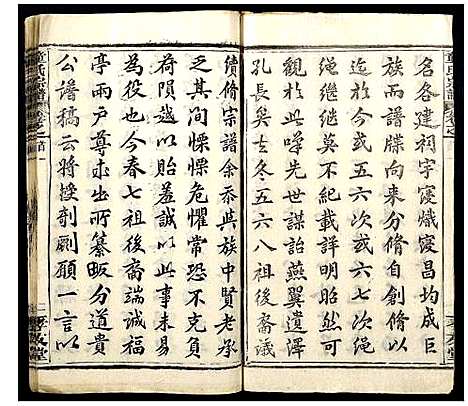 名各建祠宇寖熾寖昌均成巨
族而譜牒向来分脩自創脩以
迄於今或五六次或六七次繩
繩繼繼莫不紀載詳明昭然可
觀於此見先世謀詒燕翼遺澤
孔長矣去冬五六八祖後裔議
續脩宗譜余忝其族中賢老承
之其間慄慄危懼常恐不克負
荷隕越以貽羞誠以此事未易
為役也今春七祖後裔端誠福
亭雨戸尊求出所纂畈分道貴
公譜稿云將授剞劂願一言以
童氏宗譜 卷之首